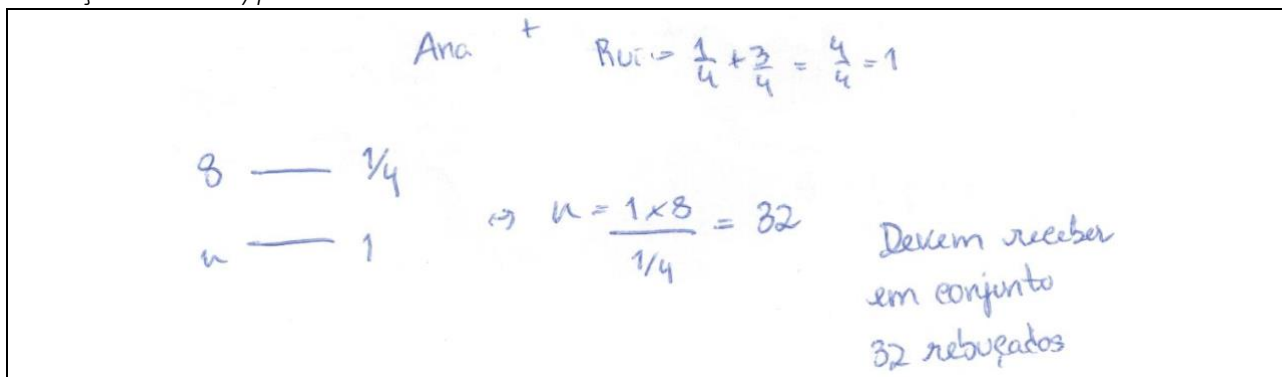 Ana + Rui = 1/4 + 3/4 = 4/4 = 1
8 — 1/4
n — 1
⇔ n = 1×8 / 1/4 = 32
Devem receber
em conjunto
32 rebuçados